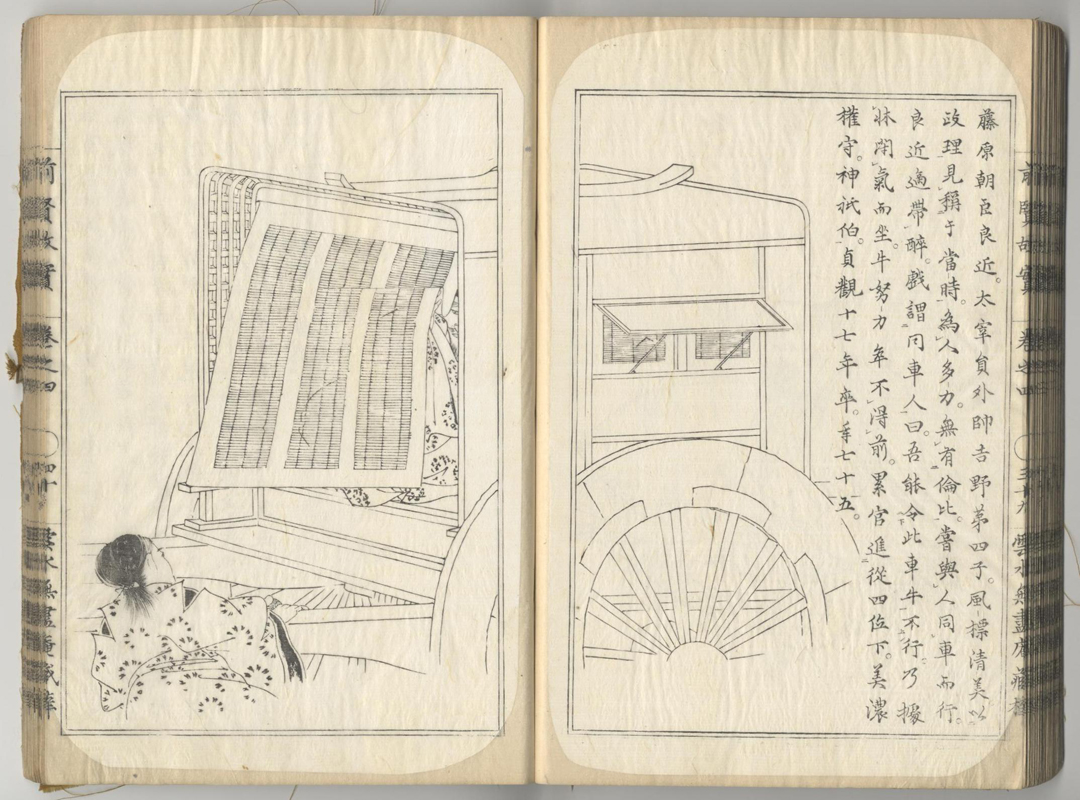 藤原朝臣良近。太宰員外帥吉野第四子。風標清美。以
政理見稱于當時。為人多力。無有倫比。嘗與人同車而行。
良近過帶醉。戲謂同車人曰。吾能令此車牛不行。乃據
牀閉氣而坐。牛努力牽不得前。累官進從四位下。美濃
權守。神祇伯。貞觀十七年卒。年七十五。
前賢故實
卷之四
三十九
雲水無盡庵藏梓
前賢故實
卷之四
四十
雲水無盡庵藏梓